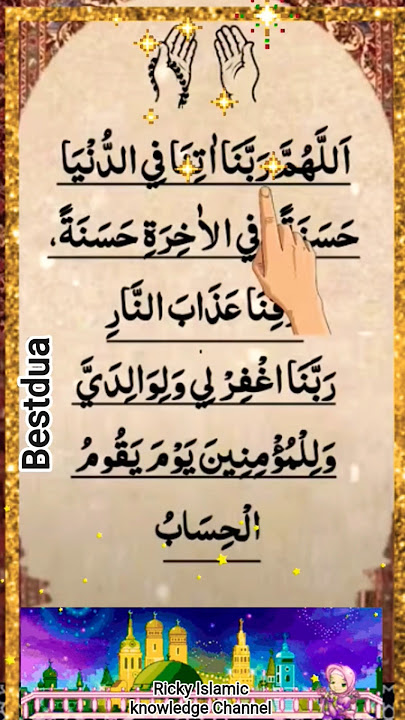 اَللّٰهُمَّ رَبَّنَا اٰتِنَا فِي الدُّنْيَا
حَسَنَةً فِي الْاٰخِرَةِ حَسَنَةً،
قِنَا عَذَابَ النَّارِ
رَبَّنَا اغْفِرْ لِي وَلِوَالِدَيَّ
وَلِلْمُؤْمِنِينَ يَوْمَ يَقُومُ
الْحِسَابُ
Bestdua
Ricky Islamic
knowledge Channel